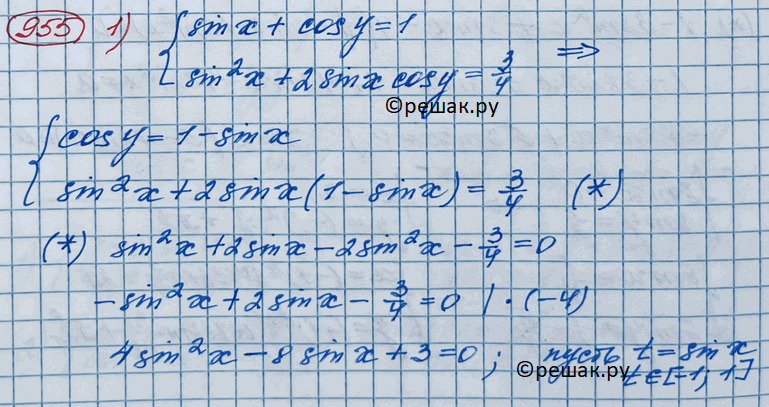 955 1) { sin x + cos y = 1
sin²x + 2 sin x cos y = 3/4 ⇒
©решак.ру
{ cos y = 1 - sin x
sin²x + 2 sin x (1 - sin x) = 3/4 (*)
(*) sin²x + 2 sin x - 2 sin²x - 3/4 = 0
- sin²x + 2 sin x - 3/4 = 0 | · (-4)
4 sin²x - 8 sin x + 3 = 0 ; пусть t = sin x
©решак.ру t ∈ [-1; 1]